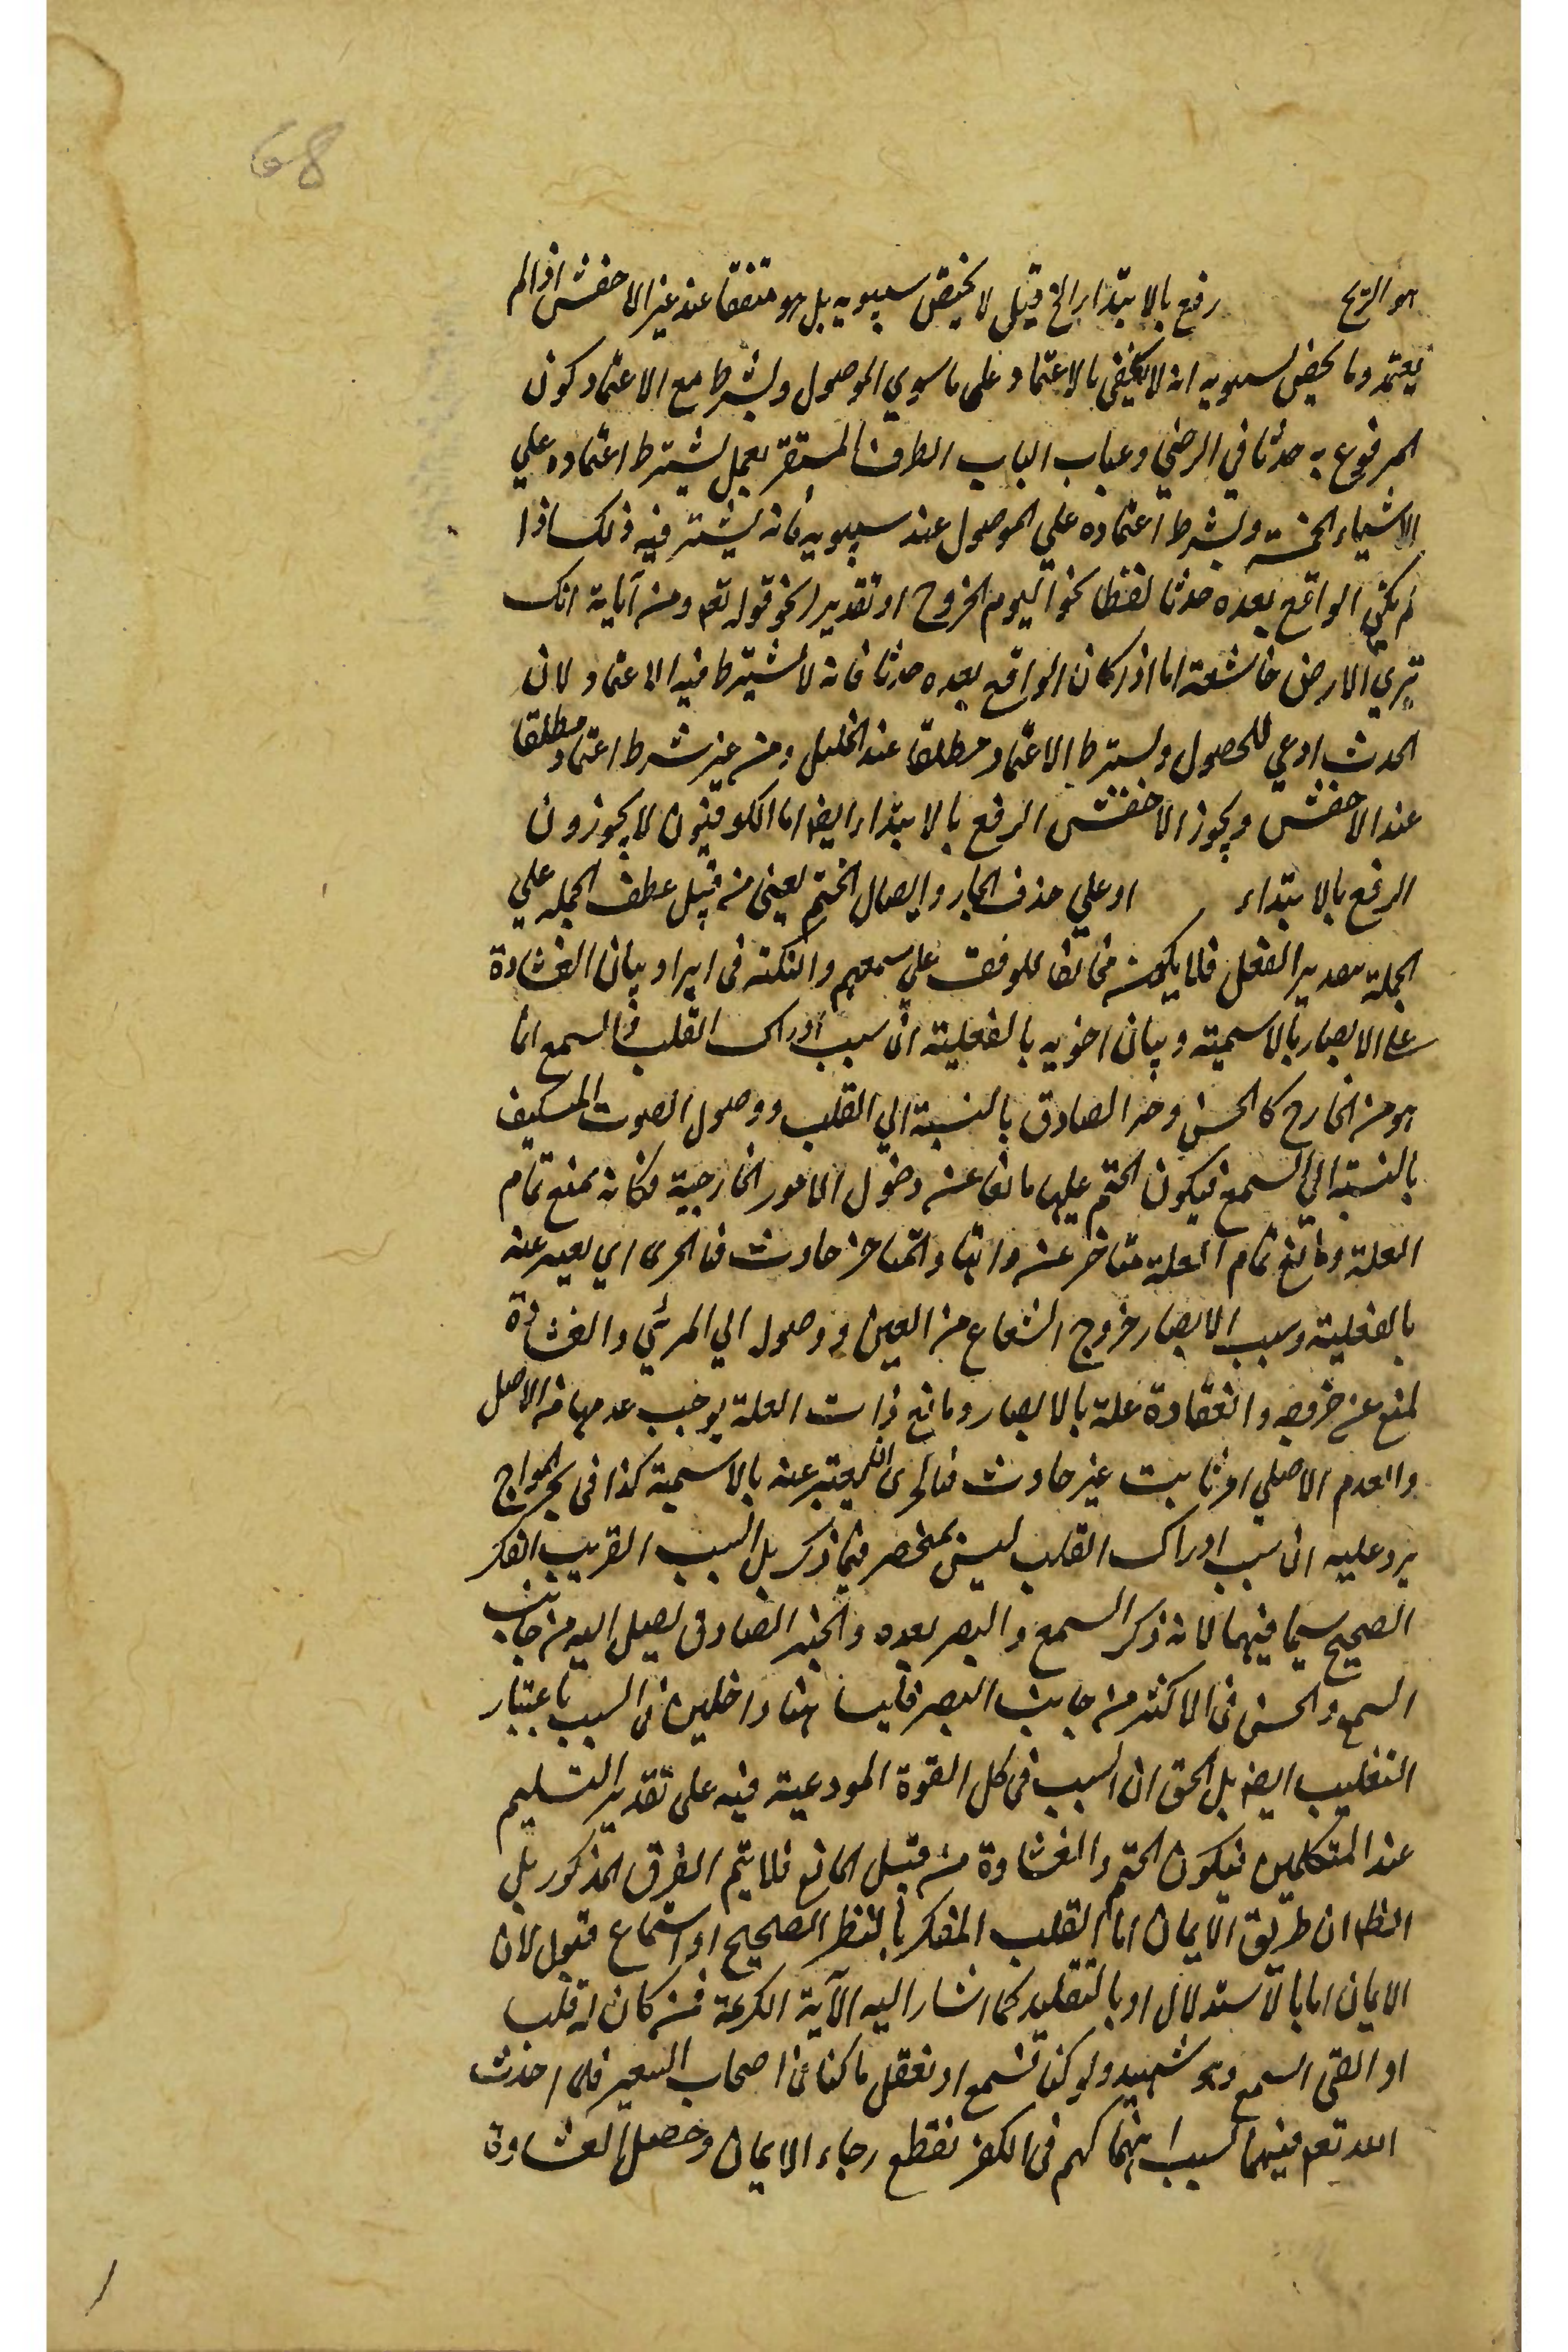 68
هو الريح رفع بالابتداء الخ قيل لا يختص سيبويه بل هو متفقا عند غير الاخفش اذا لم
يعتمد وما يخص لسيبويه انه لا يكتفى بالاعتماد على ما سوي الموصول ويشترط مع الاعتماد كون
المرفوع به حدثا في الرضي وعباب الباب الظرف المستقر يعمل يشترط اعتماده علي
الاشياء الخمسة ويشترط اعتماده علي الموصول عند سيبويه فانه يشترط فيه ذلك اذا
لم يكن الواقع بعده حدثا لفظا نحو اليوم الخروج او تقديرا نحو قوله تعه ومن آياته انك
تري الارض خاشعة اما اذا كان الواقع بعده حدثا فانه لا يشترط فيه الاعتماد لان
الحدث ادعي للحصول ويشترط الاعتماد مطلقا عند الخليل ومن غير شرط اعتماد مطلقا
عند الاخفش ويجوز الاخفش الرفع بالابتداء ايضا اما الكوفيون لا يجوزون
الرفع بالابتداء او علي حذف الجار وايصال الختم يعنى من قبيل عطف الجمله علي
الجملة بتقدير الفعل فلا يكون مخالفا للوقف علي سمعهم والنكتة فى ايراد بيان الغشاوة
على الابصار بالاسمية وبيان اخويه بالفعلية ان سبب ادراك القلب والسمع انما
هو من الخارج كالحس وخبر الصادق بالنسبة الي القلب ووصول الصوت المتكيف
بالنسبة الي السمع فيكون الختم عليهما مانعا عن دخول الامور الخارجية فكانه يمنع تمام
العلة ومانع تمام العلة متاخر عن والمتاخر حادث فالحرى اي يعبر عنه
بالفعلية وسبب الابصار خروج الشعاع من العين ووصوله الي المرئي والغشاوة
لمنع عن خروجه والغشاوة علة بالابصار ومانع ذات العلة يوجب عدمها من الاصل
والعدم الاصلي امر ثابت غير حادث فالحرى ان يعتبر عنه بالاسمية كذا فى بحر المواج
يرد عليه ان سبب ادراك القلب ليس بمنحصر فيما ذكر بل السبب القريب الفكر
الصحيح سيما فيهما لانه ذكر السمع والبصر بعده والخبر الصادق يصل اليه من جانب
السمع والحس فى الاكثر من جانب البصر فليسا هنا داخلين فى السبب باعتبار
التغليب ايضا بل الحق ان السبب فى كل القوة المودعية فيه على تقدير التسليم
عند المتكلمين فيكون الختم والغشاوة من قبيل المانع فلا يتم الفرق المذكور بل
الظه ان طريق الايمان اما القلب المفكر بالنظر الصحيح او استماع قبول لان
الايمان اما بالاستدلال او بالتقليد كما اشار اليه الآية الكريمة فمن كان له قلب
او القى السمع وهو شهيد ولو كنا نسمع او نعقل ما كنا فى اصحاب السعير فلما احدث
الله تعه فيهما بسبب انهماكهم فى الكفر نقطع رجاء الايمان وحصل الغشاوة